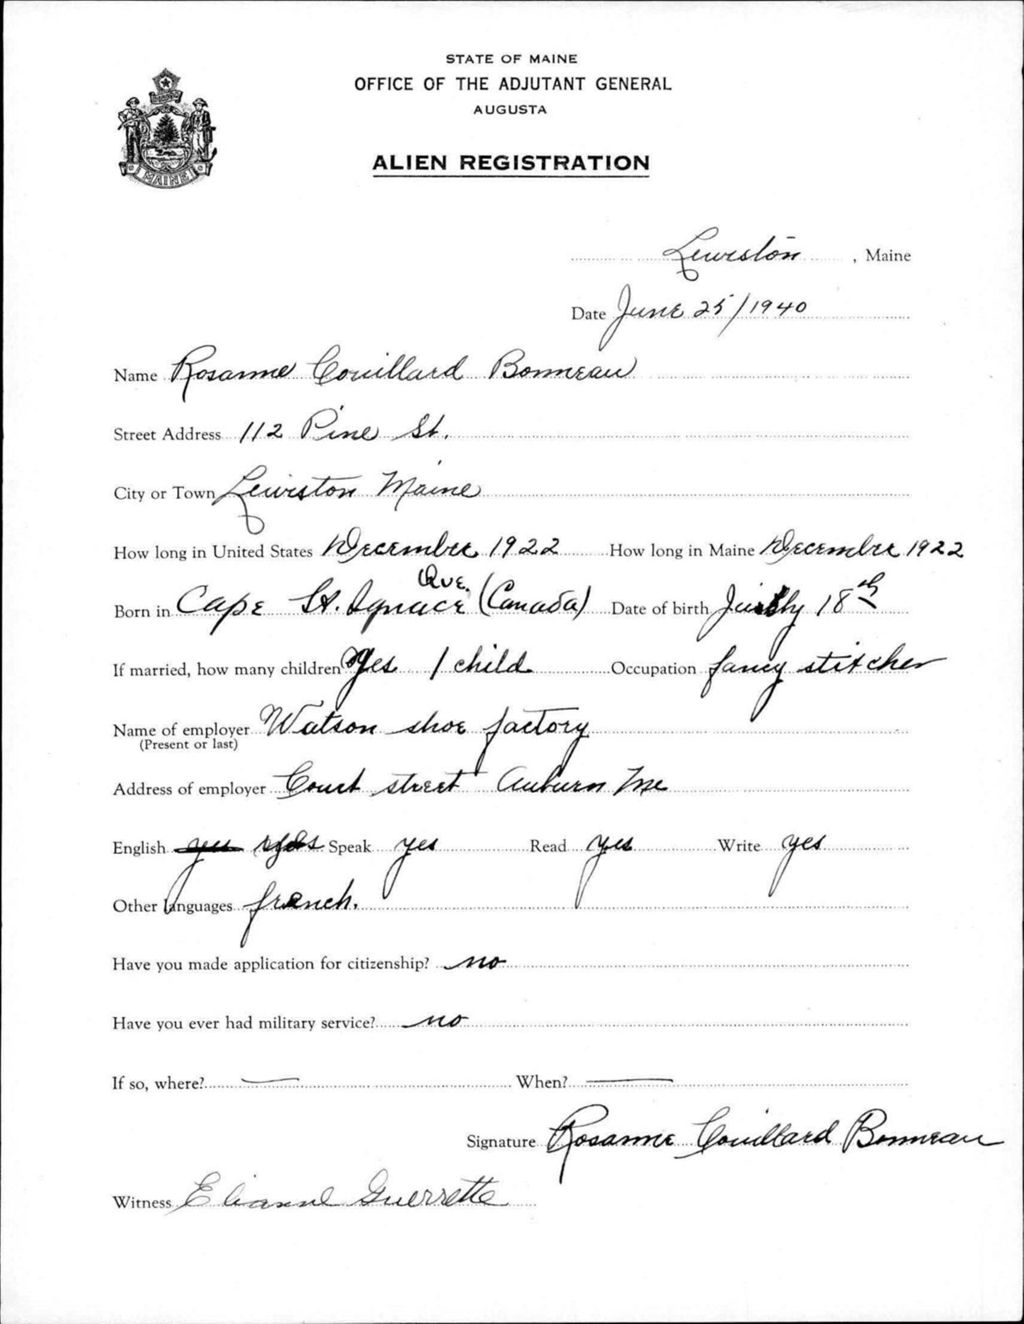 STATE OF MAINE
OFFICE OF THE ADJUTANT GENERAL
AUGUSTA
ALIEN REGISTRATION
MAINE
Lewiston , Maine
Date June 25/1940
Name Rosanne Couillard Bonneau
Street Address 112 Pine St.
City or Town Lewiston Maine
How long in United States December 1922 How long in Maine December 1922
Born in Cape St. Ignace Que. (Canada) Date of birth July 18th
If married, how many children Yes 1 child Occupation fancy stitcher
Name of employer Watson shoe factory
(Present or last)
Address of employer Court street Auburn Me
English yes Speak yes Read yes Write yes
Other languages french.
Have you made application for citizenship? no
Have you ever had military service? no
If so, where? — When? —
Signature Rosanne Couillard Bonneau
Witness Elianne Guerrette